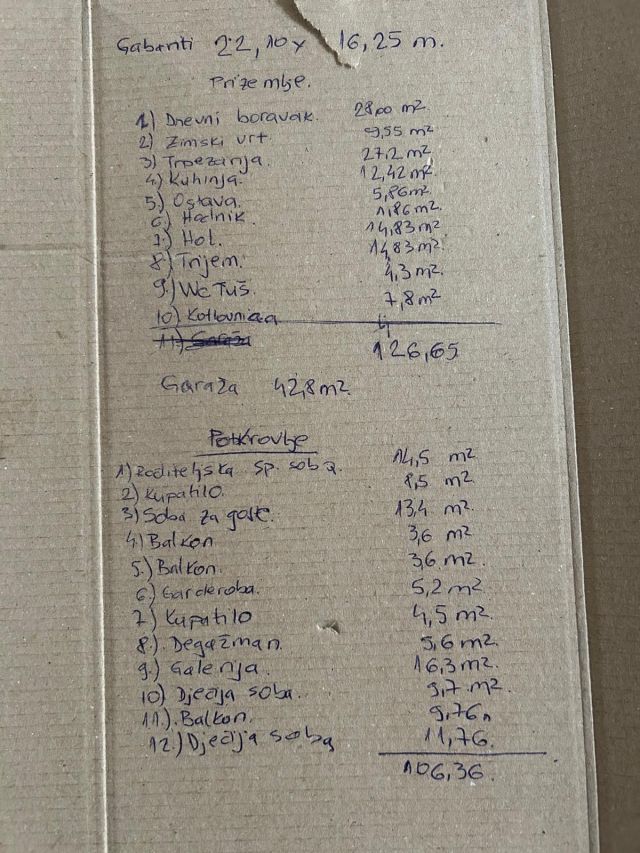 Gabariti 22,10 x 16,25 m.
Prizemlje.
1.) Dnevni boravak. 28,00 m²
2) Zimski vrt. 9,55 m²
3) Trpezarija. 27,2 m²
4.) Kuhinja. 12,42 m².
5.) Ostava. 5,86 m².
6.) Hodnik. 1,86 m².
7.) Hol. 14,83 m²
8.) Trijem. 14,83 m².
9.) WC Tuš. 4,3 m².
10) Kotlovnica 7,8 m²
11.) Garaža
126,65
Garaža 42,8 m².
Potkrovlje
1) Roditeljska sp. soba. 14,5 m²
2) Kupatilo. 8,5 m².
3) Soba za goste. 13,4 m²
4.) Balkon 3,6 m²
5.) Balkon. 3,6 m².
6.) Garderoba. 5,2 m²
7.) Kupatilo 4,5 m².
8.). Degažman. 5,6 m².
9.) Galerija. 16,3 m².
10) Dječija soba. 9,7 m².
11.). Balkon. 9,76
12.) Dječija soba 11,76.
106,36.